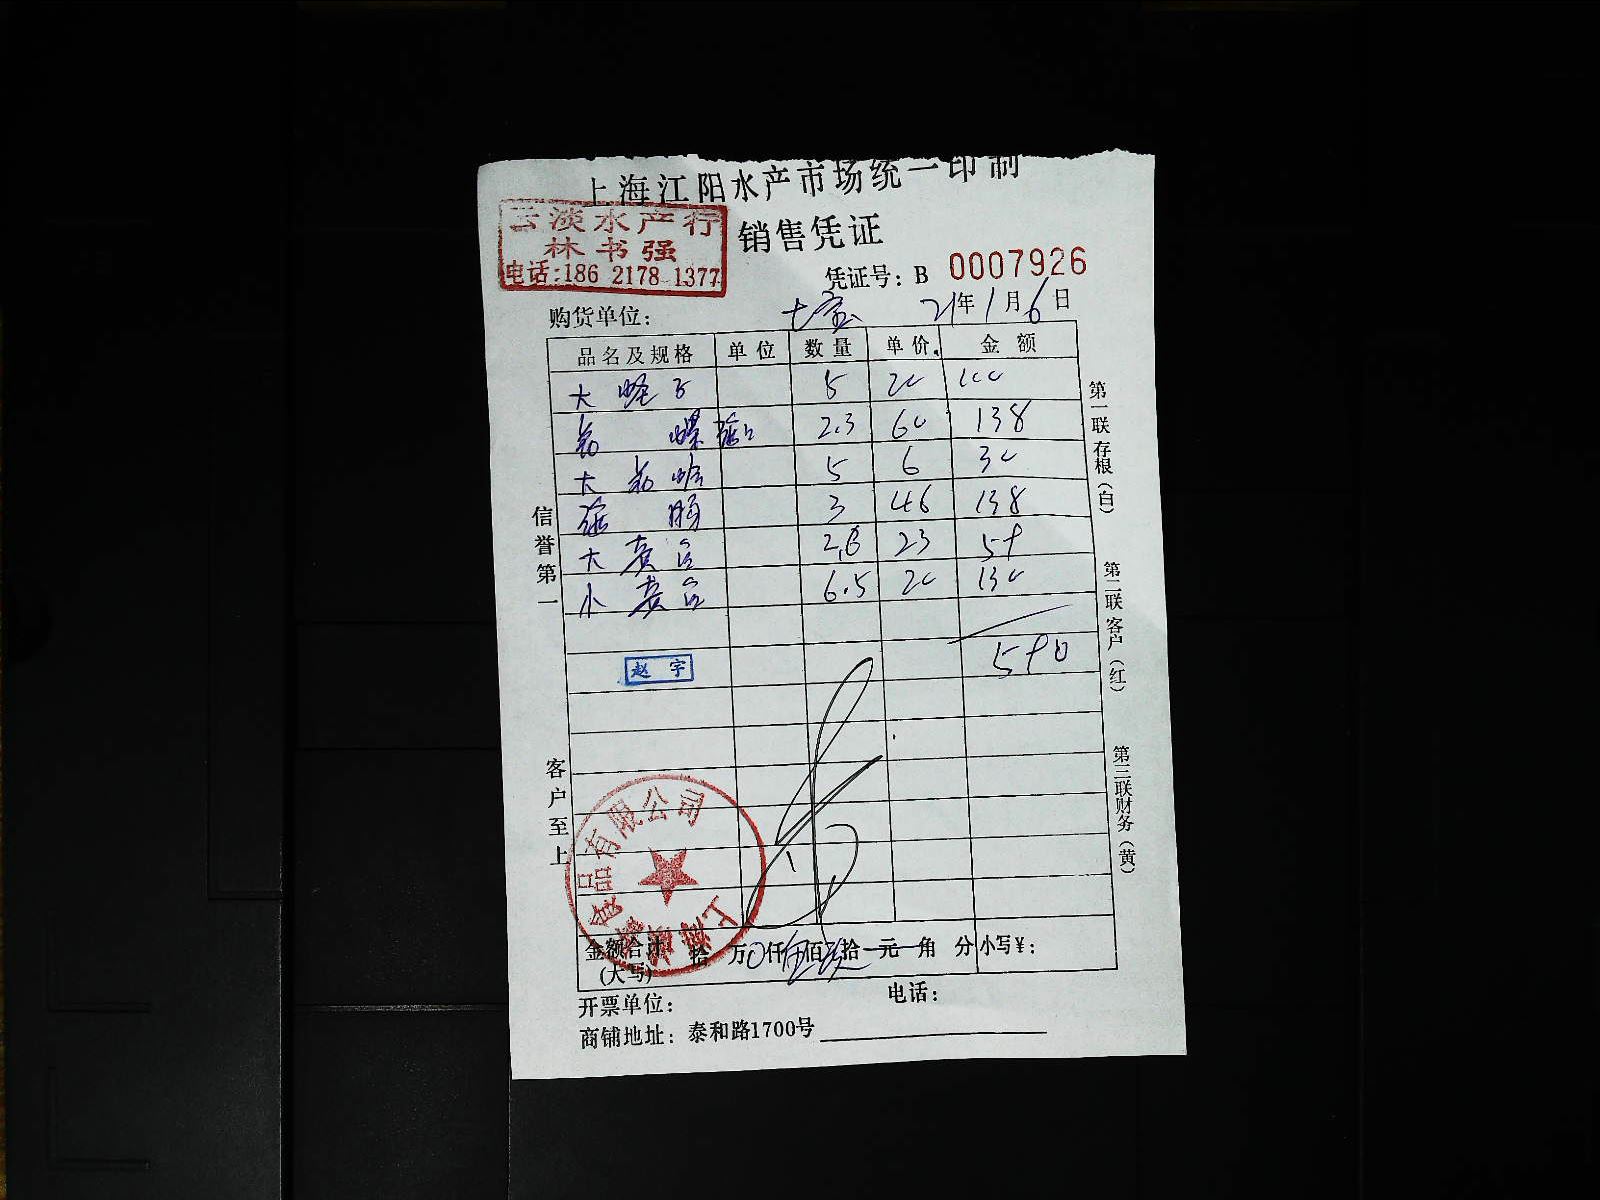 上海江阳水产市场统一印制
云淡水产行
林书强
电话:186 2178 1377
销售凭证
凭证号: B 0007926
购货单位: 七宝 21年1月6日
品名及规格 单位 数量 单价 金额
大蛏子 5 20 100
2.3 60 138
大 5 6 30
3 46 138
大 23 54
小 6.5 20 130
590
赵宇
信誉第一
客户至上
第一联存根(白)
第二联客户(红)
第三联财务(黄)
上海 食品有限公司
金额合计(大写) 拾 万 0仟伍佰玖拾 元 角 分 小写¥:
开票单位: 电话:
商铺地址: 泰和路1700号